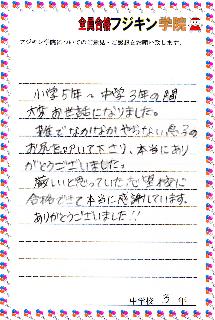 全員合格フジキン学院
フジキン学院についてのご意見・ご感想をお願い致します。
小学5年～中学3年の間
大変お世話になりました。
雑でなかなかやらない息子の
お尻を叩いて下さり、本当にあり
がとうございました。
厳しいと思っていた志望校に
合格できて本当に感謝しています。
ありがとうございました!!
中学校 3 年